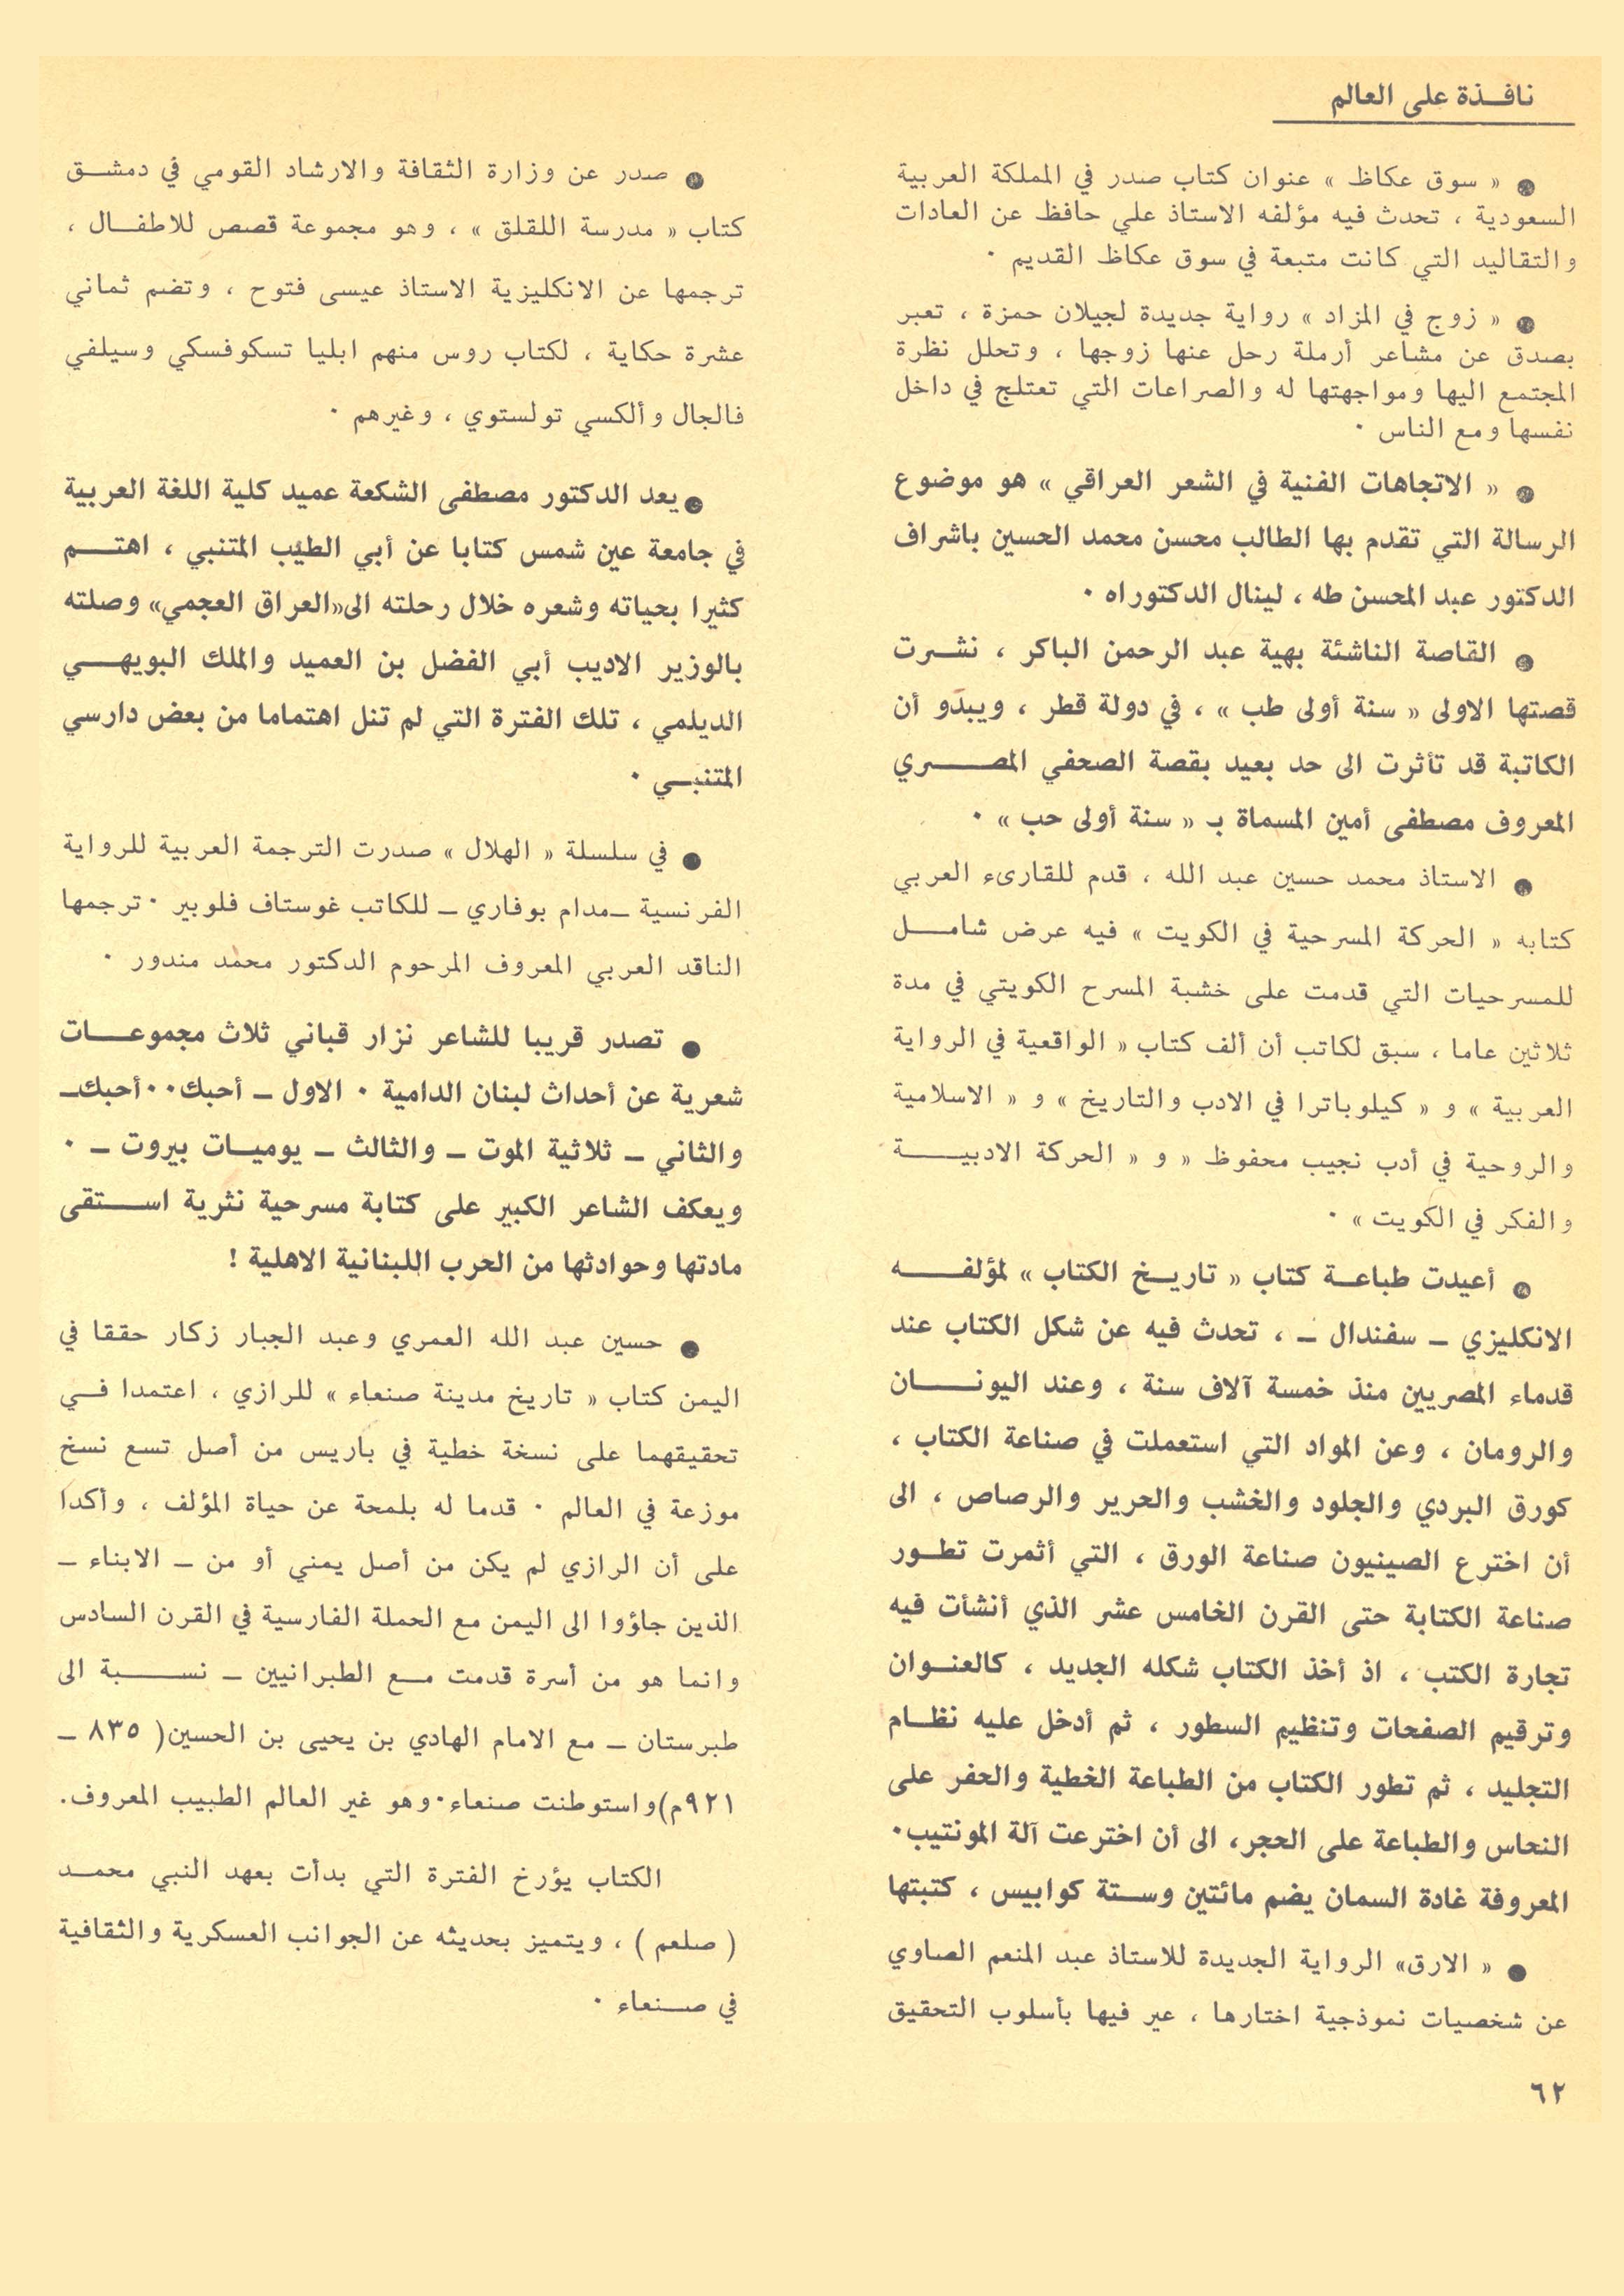 نافذة على العالم
● « سوق عكاظ » عنوان كتاب صدر في المملكة العربية
السعودية ، تحدث فيه مؤلفه الاستاذ علي حافظ عن العادات
والتقاليد التي كانت متبعة في سوق عكاظ القديم ٠
● « زوج في المزاد » رواية جديدة لجيلان حمزة ، تعبر
بصدق عن مشاعر أرملة رحل عنها زوجها ، وتحلل نظرة
المجتمع اليها ومواجهتها له والصراعات التي تعتلج في داخل
نفسها ومع الناس ٠
● « الاتجاهات الفنية في الشعر العراقي » هو موضوع
الرسالة التي تقدم بها الطالب محسن محمد الحسين باشراف
الدكتور عبد المحسن طه ، لينال الدكتوراه ٠
● القاصة الناشئة بهية عبد الرحمن الباكر ، نشرت
قصتها الاولى « سنة أولى طب » ، في دولة قطر ، ويبدو أن
الكاتبة قد تأثرت الى حد بعيد بقصة الصحفي المصري
المعروف مصطفى أمين المسماة بـ « سنة أولى حب » ٠
● الاستاذ محمد حسين عبد الله ، قدم للقارىء العربي
كتابه « الحركة المسرحية في الكويت » فيه عرض شامل
للمسرحيات التي قدمت على خشبة المسرح الكويتي في مدة
ثلاثين عاما ، سبق لكاتب أن ألف كتاب « الواقعية في الرواية
العربية » و « كيلوباترا في الادب والتاريخ » و « الاسلامية
والروحية في أدب نجيب محفوظ « و « الحركة الادبية
والفكر في الكويت » ٠
● أعيدت طباعة كتاب « تاريخ الكتاب » لمؤلفه
الانكليزي ــ سفندال ــ ، تحدث فيه عن شكل الكتاب عند
قدماء المصريين منذ خمسة آلاف سنة ، وعند اليونان
والرومان ، وعن المواد التي استعملت في صناعة الكتاب ،
كورق البردي والجلود والخشب والحرير والرصاص ، الى
أن اخترع الصينيون صناعة الورق ، التي أثمرت تطور
صناعة الكتابة حتى القرن الخامس عشر الذي أنشأت فيه
تجارة الكتب ، اذ أخذ الكتاب شكله الجديد ، كالعنوان
وترقيم الصفحات وتنظيم السطور ، ثم أدخل عليه نظام
التجليد ، ثم تطور الكتاب من الطباعة الخطية والحفر على
النحاس والطباعة على الحجر، الى أن اخترعت آلة المونتيب٠
المعروفة غادة السمان يضم مائتين وستة كوابيس ، كتبتها
● « الارق» الرواية الجديدة للاستاذ عبد المنعم الصاوي
عن شخصيات نموذجية اختارها ، عبر فيها بأسلوب التحقيق
● صدر عن وزارة الثقافة والارشاد القومي في دمشق
كتاب « مدرسة اللقلق » ، وهو مجموعة قصص للاطفال ،
ترجمها عن الانكليزية الاستاذ عيسى فتوح ، وتضم ثماني
عشرة حكاية ، لكتاب روس منهم ابليا تسكوفسكي وسيلفي
فالجال وألكسي تولستوي ، وغيرهم ٠
● يعد الدكتور مصطفى الشكعة عميد كلية اللغة العربية
في جامعة عين شمس كتابا عن أبي الطيب المتنبي ، اهتم
كثيرا بحياته وشعره خلال رحلته الى«العراق العجمي» وصلته
بالوزير الاديب أبي الفضل بن العميد والملك البويهي
الديلمي ، تلك الفترة التي لم تنل اهتماما من بعض دارسي
المتنبي ٠
● في سلسلة « الهلال » صدرت الترجمة العربية للرواية
الفرنسية ــ مدام بوفاري ــ للكاتب غوستاف فلوبير ٠ ترجمها
الناقد العربي المعروف المرحوم الدكتور محمد مندور ٠
● تصدر قريبا للشاعر نزار قباني ثلاث مجموعات
شعرية عن أحداث لبنان الدامية ٠ الاول ــ أحبك٠٠أحبك ــ
والثاني ــ ثلاثية الموت ــ والثالث ــ يوميات بيروت ــ ٠
ويعكف الشاعر الكبير على كتابة مسرحية نثرية استقى
مادتها وحوادثها من الحرب اللبنانية الاهلية !
● حسين عبد الله العمري وعبد الجبار زكار حققا في
اليمن كتاب « تاريخ مدينة صنعاء » للرازي ، اعتمدا في
تحقيقهما على نسخة خطية في باريس من أصل تسع نسخ
موزعة في العالم ٠ قدما له بلمحة عن حياة المؤلف ، وأكدا
على أن الرازي لم يكن من أصل يمني أو من ــ الابناء ــ
الذين جاؤوا الى اليمن مع الحملة الفارسية في القرن السادس
وانما هو من أسرة قدمت مع الطبرانيين ــ نسبة الى
طبرستان ــ مع الامام الهادي بن يحيى بن الحسين( ٨٣٥ ــ
٩٢١م)واستوطنت صنعاء٠ وهو غير العالم الطبيب المعروف.
الكتاب يؤرخ الفترة التي بدأت بعهد النبي محمد
( صلعم ) ، ويتميز بحديثه عن الجوانب العسكرية والثقافية
في صنعاء ٠
٦٢